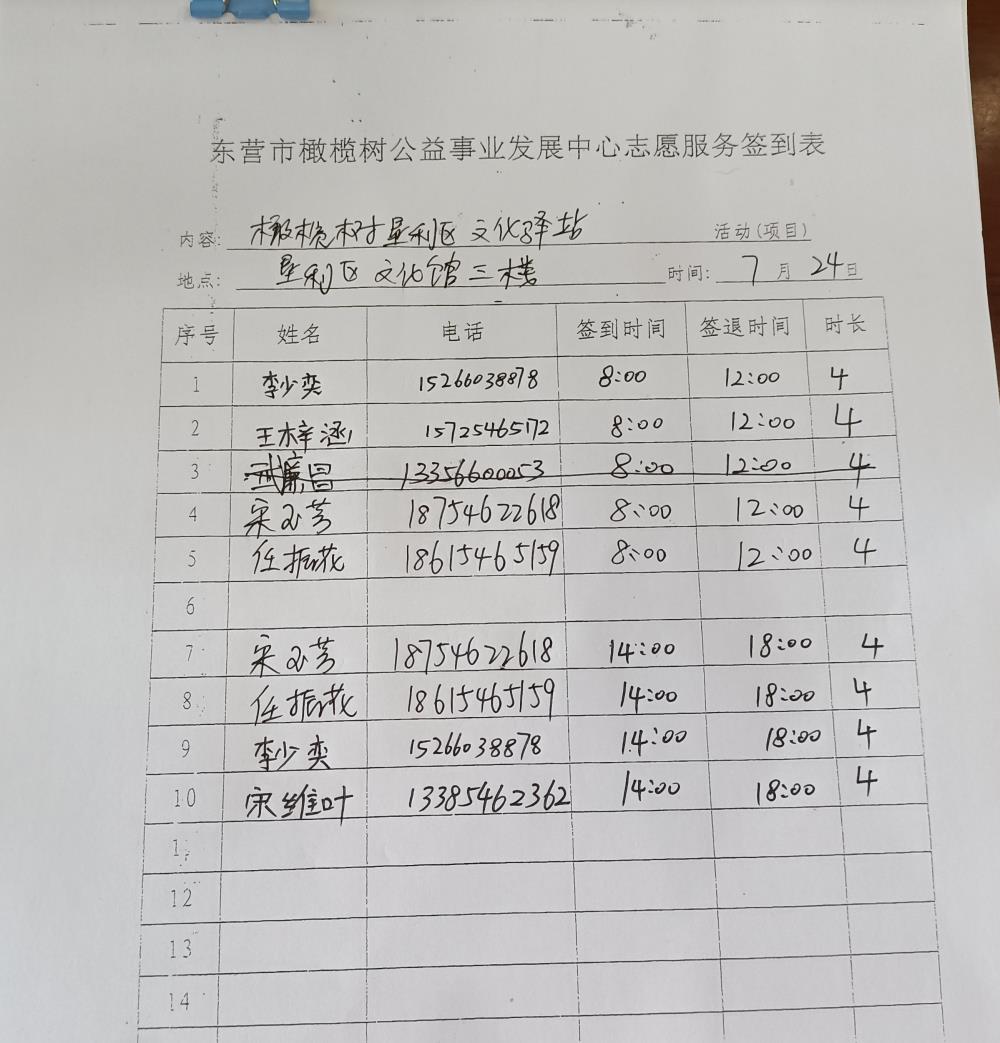 东营市橄榄树公益事业发展中心志愿服务签到表
内容: 橄榄树垦利区文化驿站 活动(项目)
地点: 垦利区文化馆三楼 时间: 7月24日
序号 姓名 电话 签到时间 签退时间 时长
1 李少奕 15266038878 8:00 12:00 4
2 王梓涵 15725465172 8:00 12:00 4
3 廉昌 13356600053 8:00 12:00 4
4 宋玉芳 18754622618 8:00 12:00 4
5 任振花 18615465159 8:00 12:00 4
6
7 宋玉芳 18754622618 14:00 18:00 4
8 任振花 18615465159 14:00 18:00 4
9 李少奕 15266038878 14:00 18:00 4
10 宋维叶 13385462362 14:00 18:00 4
11
12
13
14